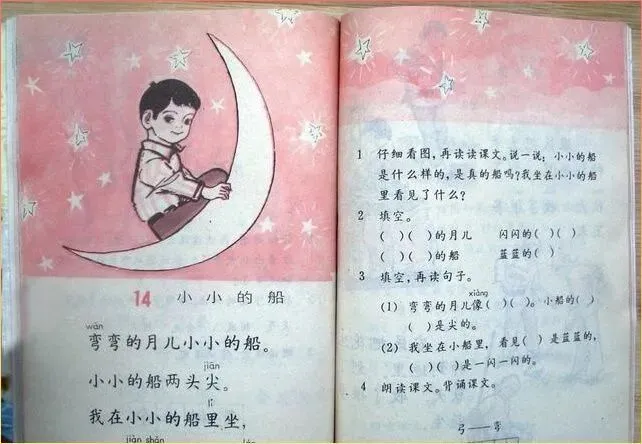 14 小小的船
wān
弯弯的月儿小小的船。
jiān
小小的船两头尖。
lǐ
我在小小的船里坐，
jiàn shǎn
1 仔细看图，再读读课文。说一说：小小的船
是什么样的，是真的船吗？我坐在小小的船
里看见了什么？
2 填空。
( )( )的月儿 闪闪的( )( )
( )( )的船 蓝蓝的( )
3 填空，再读句子。
xiàng
(1) 弯弯的月儿像( )( )。小船的( )
( )是尖的。
(2) 我坐在小船里，看见( )是蓝蓝的，
( )( )是一闪一闪的。
4 朗读课文。背诵课文。
弓——弯